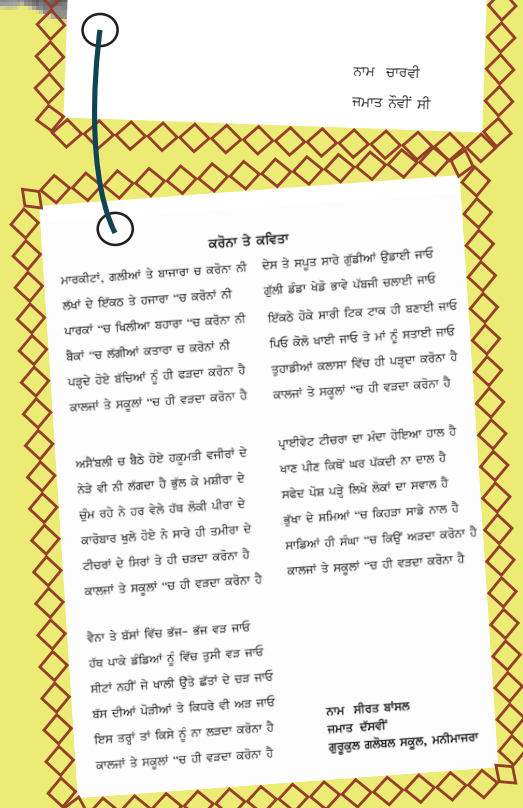 ਨਾਮ ਚਾਰਵੀ
ਜਮਾਤ ਨੌਵੀਂ ਸੀ
ਕਰੋਨਾ ਤੇ ਕਵਿਤਾ
ਮਾਰਕੀਟਾਂ, ਗਲੀਆਂ ਤੇ ਬਾਜਾਰਾ ਚ ਕਰੋਨਾ ਨੀ
ਲੱਖਾਂ ਦੇ ਇੱਕਠ ਤੇ ਹਜਾਰਾ “ਚ ਕਰੋਨਾਂ ਨੀ
ਪਾਰਕਾਂ “ਚ ਖਿਲੀਆ ਬਹਾਰਾ “ਚ ਕਰੋਨਾ ਨੀ
ਬੈਕਾਂ “ਚ ਲੱਗੀਆਂ ਕਤਾਰਾ ਚ ਕਰੋਨਾਂ ਨੀ
ਪੜ੍ਹਦੇ ਹੋਏ ਬੱਚਿਆਂ ਨੂੰ ਹੀ ਫੜਦਾ ਕਰੋਨਾ ਹੈ
ਕਾਲਜਾਂ ਤੇ ਸਕੂਲਾਂ “ਚ ਹੀ ਵੜਦਾ ਕਰੋਨਾ ਹੈ
ਅਸੈਂਬਲੀ ਚ ਬੈਠੇ ਹੋਏ ਹਕੂਮਤੀ ਵਜੀਰਾਂ ਦੇ
ਨੇੜੇ ਵੀ ਨੀ ਲੱਗਦਾ ਹੈ ਭੁੱਲ ਕੇ ਮਸ਼ੀਰਾ ਦੇ
ਚੁੰਮ ਰਹੇ ਨੇ ਹਰ ਵੇਲੇ ਹੱਥ ਲੋਕੀ ਪੀਰਾ ਦੇ
ਕਾਰੋਬਾਰ ਖੁਲੇ ਹੋਏ ਨੇ ਸਾਰੇ ਹੀ ਤਮੀਰਾ ਦੇ
ਟੀਚਰਾਂ ਦੇ ਸਿਰਾਂ ਤੇ ਹੀ ਚੜਦਾ ਕਰੋਨਾ ਹੈ
ਕਾਲਜਾਂ ਤੇ ਸਕੂਲਾਂ “ਚ ਹੀ ਵੜਦਾ ਕਰੋਨਾ ਹੈ
ਵੈਨਾ ਤੇ ਬੱਸਾਂ ਵਿੱਚ ਭੱਜ– ਭੱਜ ਵੜ ਜਾਓ
ਹੱਥ ਪਾਕੇ ਡੰਡਿਆਂ ਨੂੰ ਵਿੱਚ ਤੁਸੀ ਵੜ ਜਾਓ
ਸੀਟਾਂ ਨਹੀਂ ਜੇ ਖਾਲੀ ਉਤੇ ਛੱਤਾਂ ਦੇ ਚੜ ਜਾਓ
ਬੱਸ ਦੀਆਂ ਪੋੜੀਆਂ ਤੇ ਕਿਧਰੇ ਵੀ ਅੜ ਜਾਓ
ਇਸ ਤਰ੍ਹਾਂ ਤਾਂ ਕਿਸੇ ਨੂੰ ਨਾ ਲੜਦਾ ਕਰੋਨਾ ਹੈ
ਕਾਲਜਾਂ ਤੇ ਸਕੂਲਾਂ “ਚ ਹੀ ਵੜਦਾ ਕਰੋਨਾ ਹੈ
ਦੇਸ ਤੇ ਸਪੂਤ ਸਾਰੇ ਗੁੱਡੀਆਂ ਉਡਾਈ ਜਾਓ
ਗੁੱਲੀ ਡੰਡਾ ਖੇਡੋ ਭਾਵੇ ਪੱਬਜੀ ਚਲਾਈ ਜਾਓ
ਇੱਕਠੇ ਹੋਕੇ ਸਾਰੀ ਟਿਕ ਟਾਕ ਹੀ ਬਣਾਈ ਜਾਓ
ਪਿਓ ਕੋਲੋ ਖਾਈ ਜਾਓ ਤੇ ਮਾਂ ਨੂੰ ਸਤਾਈ ਜਾਓ
ਤੁਹਾਡੀਆਂ ਕਲਾਸਾ ਵਿੱਚ ਹੀ ਪੜ੍ਹਦਾ ਕਰੋਨਾ ਹੈ
ਕਾਲਜਾਂ ਤੇ ਸਕੂਲਾਂ “ਚ ਹੀ ਵੜਦਾ ਕਰੋਨਾ ਹੈ
ਪ੍ਰਾਈਵੇਟ ਟੀਚਰਾ ਦਾ ਮੰਦਾ ਹੋਇਆ ਹਾਲ ਹੈ
ਖਾਣ ਪੀਣ ਕਿਥੋਂ ਘਰ ਪੱਕਦੀ ਨਾ ਦਾਲ ਹੈ
ਸਫੇਦ ਪੋਸ਼ ਪੜ੍ਹੇ ਲਿਖੇ ਲੋਕਾਂ ਦਾ ਸਵਾਲ ਹੈ
ਭੁੱਖਾ ਦੇ ਸਮਿਆਂ “ਚ ਕਿਹੜਾ ਸਾਡੇ ਨਾਲ ਹੈ
ਸਾਡਿਆਂ ਹੀ ਸੰਘਾ “ਚ ਕਿਉਂ ਅੜਦਾ ਕਰੋਨਾ ਹੈ
ਕਾਲਜਾਂ ਤੇ ਸਕੂਲਾਂ “ਚ ਹੀ ਵੜਦਾ ਕਰੋਨਾ ਹੈ
ਨਾਮ ਸੀਰਤ ਬਾਂਸਲ
ਜਮਾਤ ਦੱਸਵੀਂ
ਗੁਰੂਕੁਲ ਗਲੋਬਲ ਸਕੂਲ, ਮਨੀਮਾਜਰਾ